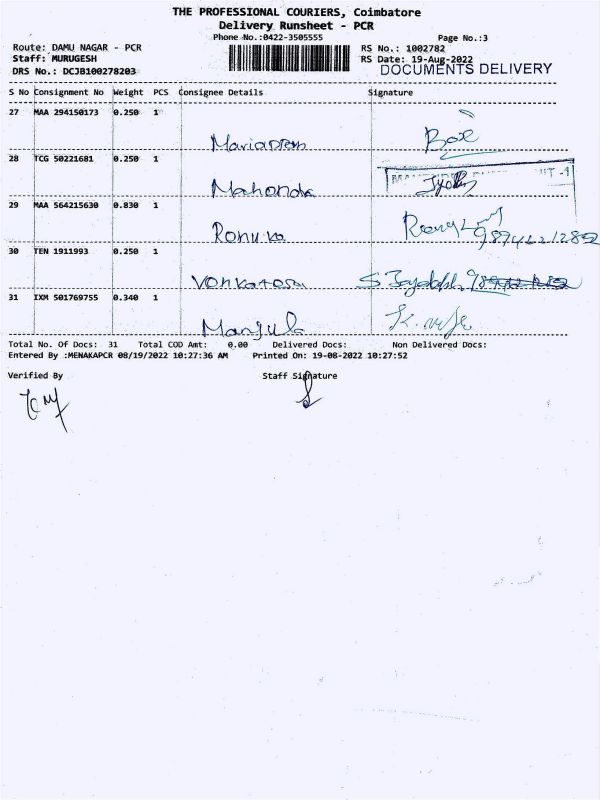 THE PROFESSIONAL COURIERS, Coimbatore
Delivery Runsheet - PCR
Phone No.:0422-3505555 Page No.:3
Route: DAMU NAGAR - PCR RS No.: 1002782
Staff: MURUGESH RS Date: 19-Aug-2022
DRS No.: DCJB100278203 DOCUMENTS DELIVERY
S No Consignment No Weight PCS Consignee Details Signature
27 MAA 294150173 0.250 1
Box
28 TCG 50221681 0.250 1
Mahonda
29 MAA 564215630 0.830 1
Ronuka
30 TEN 1911993 0.250 1
Vonkatosu
31 IXM 501769755 0.340 1
Manjula
Total No. Of Docs: 31 Total COD Amt: 0.00 Delivered Docs: Non Delivered Docs:
Entered By :MENAKAPCR 08/19/2022 10:27:36 AM Printed On: 19-08-2022 10:27:52
Verified By Staff Signature